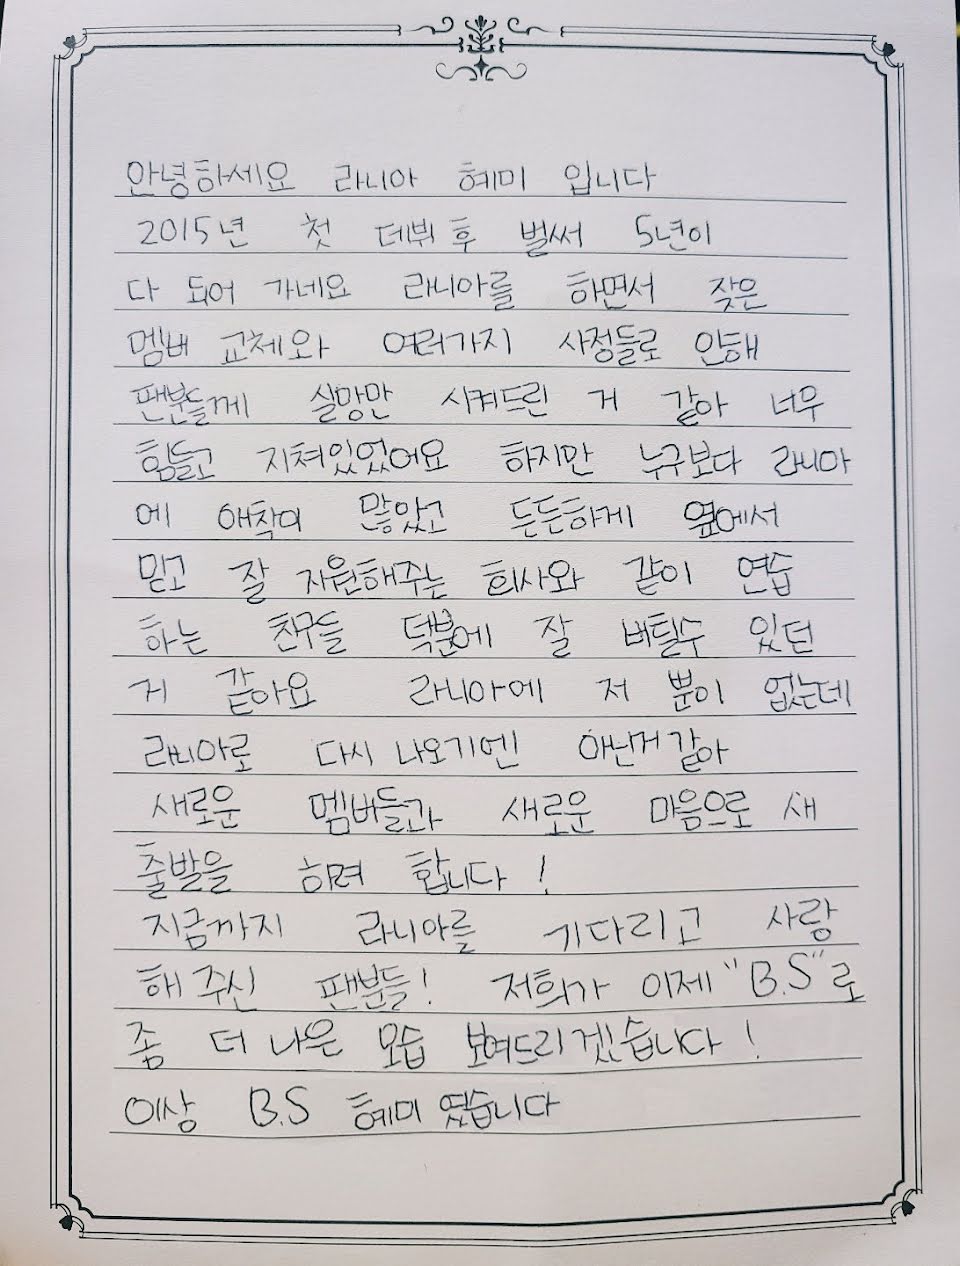 안녕하세요 라니아 혜미 입니다
2015년 첫 데뷔 후 벌써 5년이
다 되어 가네요 라니아를 하면서 잦은
멤버 교체와 여러가지 사정들로 인해
팬분들께 실망만 시켜드린 거 같아 너무
힘들고 지쳐있었어요 하지만 누구보다 라니아
에 애착이 많았고 든든하게 옆에서
믿고 잘 지원해주는 회사와 같이 연습
하는 친구들 덕분에 잘 버틸수 있던
거 같아요 라니아에 저 뿐이 없는데
라니아로 다시 나오기엔 아닌거 같아
새로운 멤버들과 새로운 마음으로 새
출발을 하려 합니다 !
지금까지 라니아를 기다리고 사랑
해 주신 팬분들! 저희가 이제 "B.S"로
좀 더 나은 모습 보여드리겠습니다 !
이상 B.S 혜미 였습니다